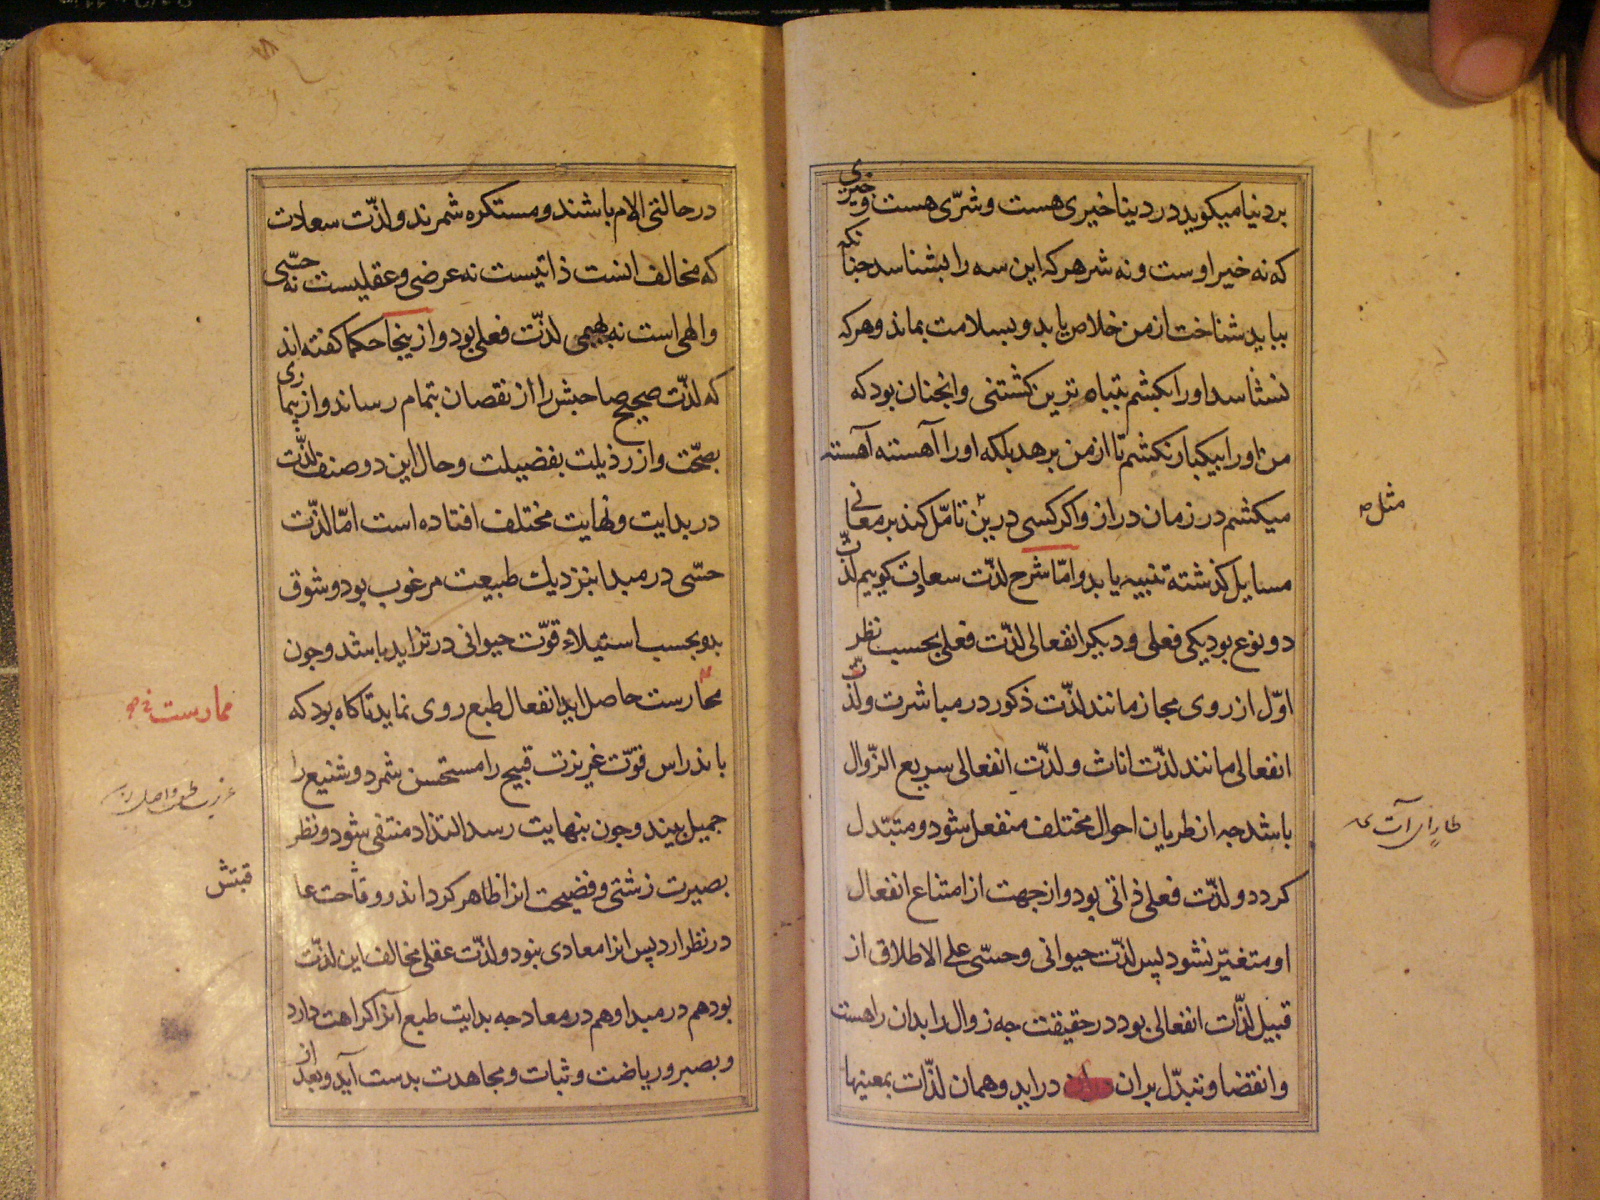 بر دنیا میکوید در دینا خیری هست و شرّی هست و خیری
که نه خیر اوست و نه شر هر که این سه را بشناسد جنانکه
بباید شناخت از من خلاص یابد و بسلامت بماند و هر که
نشناسد او را بکشم بتباه ترین کشتنی و انجنان بود که
من او را بیکبار نکشم تا از من برهد بلکه او را آهسته آهسته
میکشم در زمان دراز و اکر کسی درین تامّل کند بر معانی
مسایل کذشته تنبیه یابد و امّا شرح لذّت سعادت کوییم لذّت
دو نوع بود یکی فعلی و دیکر انفعالی لذّت فعلی بحسب نظر
اوّل از روی مجاز مانند لذّت ذکور در مباشرت و لذّت
انفعالی مانند لذّت اناث و لذّت انفعالی سریع الزّوال
باشد جه از طریان احوال مختلف منفعل شود و متبّدل
کردد و لذّت فعلی ذاتی بود و از جهت از امتناع انفعال
او متغیّر نشود پس لذّت حیوانی و حسّی علی الاطلاق از
قبیل لذّات انفعالی بود در حقیقت جه زوال را بدان راهست
و انقضا و تبدّل بران دراید و همان لذّات بمعینها
مثل
در حالتی الام باشند و مستکره شمرند و لذّت سعادت
که مخالف انست ذاتیست نه عرضی و عقلیست نه حسّی
و الهی است نه بهیمی لذّت فعلی بود و ازینجا حکما کفته اند
که لذّت صحیح صاحبش را از نقصان بتمام رساند و از بیماری
بصحّت و از رذیلت بفضیلت و حال این دو صنف لذّت
در بدایت و نهایت مختلف افتاده است امّا لذّت
حسّی در مبدا بنزدیك طبیعت مرغوب بود و شوق
بدو بحسب استیلاء قوّت حیوانی در تزاید باشد و جون
محارست حاصل اید انفعال طبع روی نماید تا کاه بود که
باندراس قوّت غریزت قبیح را مستحسن شمرد و شنیع را
جمیل بیند و جون بنهایت رسد التذاذ منتفی شود و نظر
بصیرت زشتی و فضیحت انرا ظاهر کرداند و وقاحت عا
در نظر ارد پس انرا معادی نبود و لذّت عقلی مخالف این لذّت
بود هم در مبدا و هم در معاد جه بدایت طبع آنرا کراهت دارد
و بصبر و ریاضت و ثبات و مجاهدت بدست آید و بعد از
ممارست